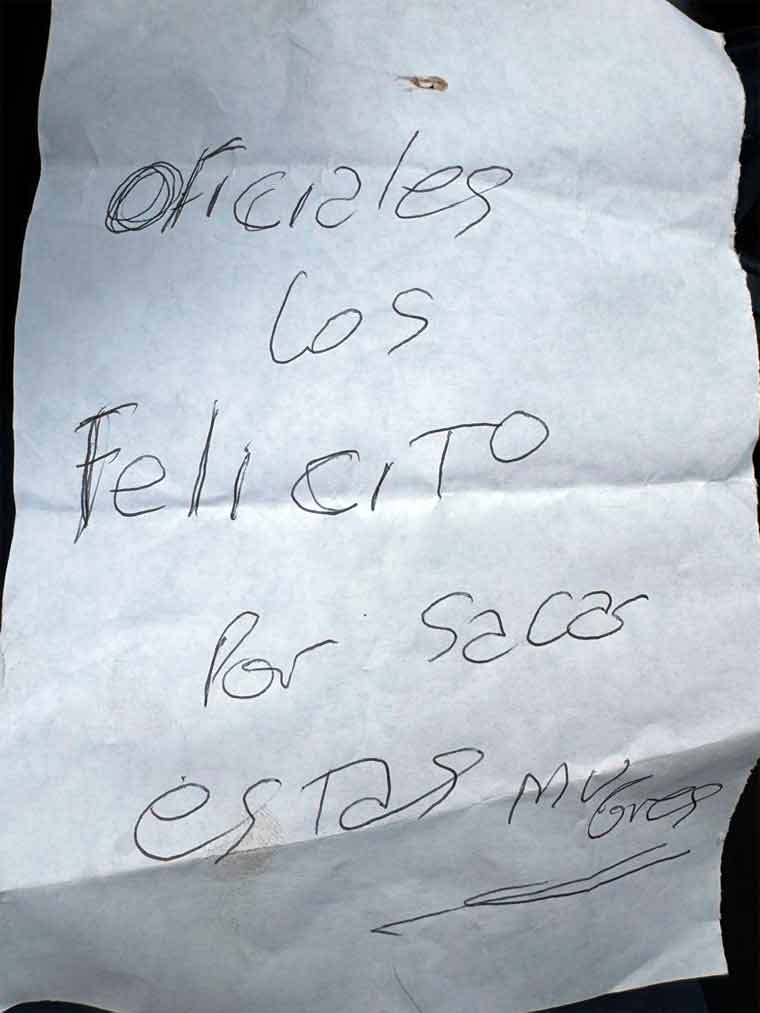 oficiales
los
Felicito
Por sacar
estas mugres